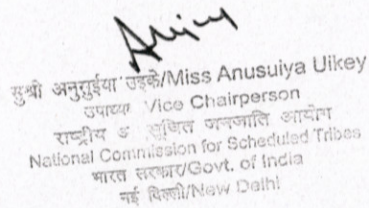 सुश्री अनुसुईया उइके/Miss Anusuiya Uikey
उपाध्यक्ष Vice Chairperson
राष्ट्रीय जनजाति आयोग
National Commission for Scheduled Tribes
भारत सरकार/Govt. of India
नई दिल्ली/New Delhi